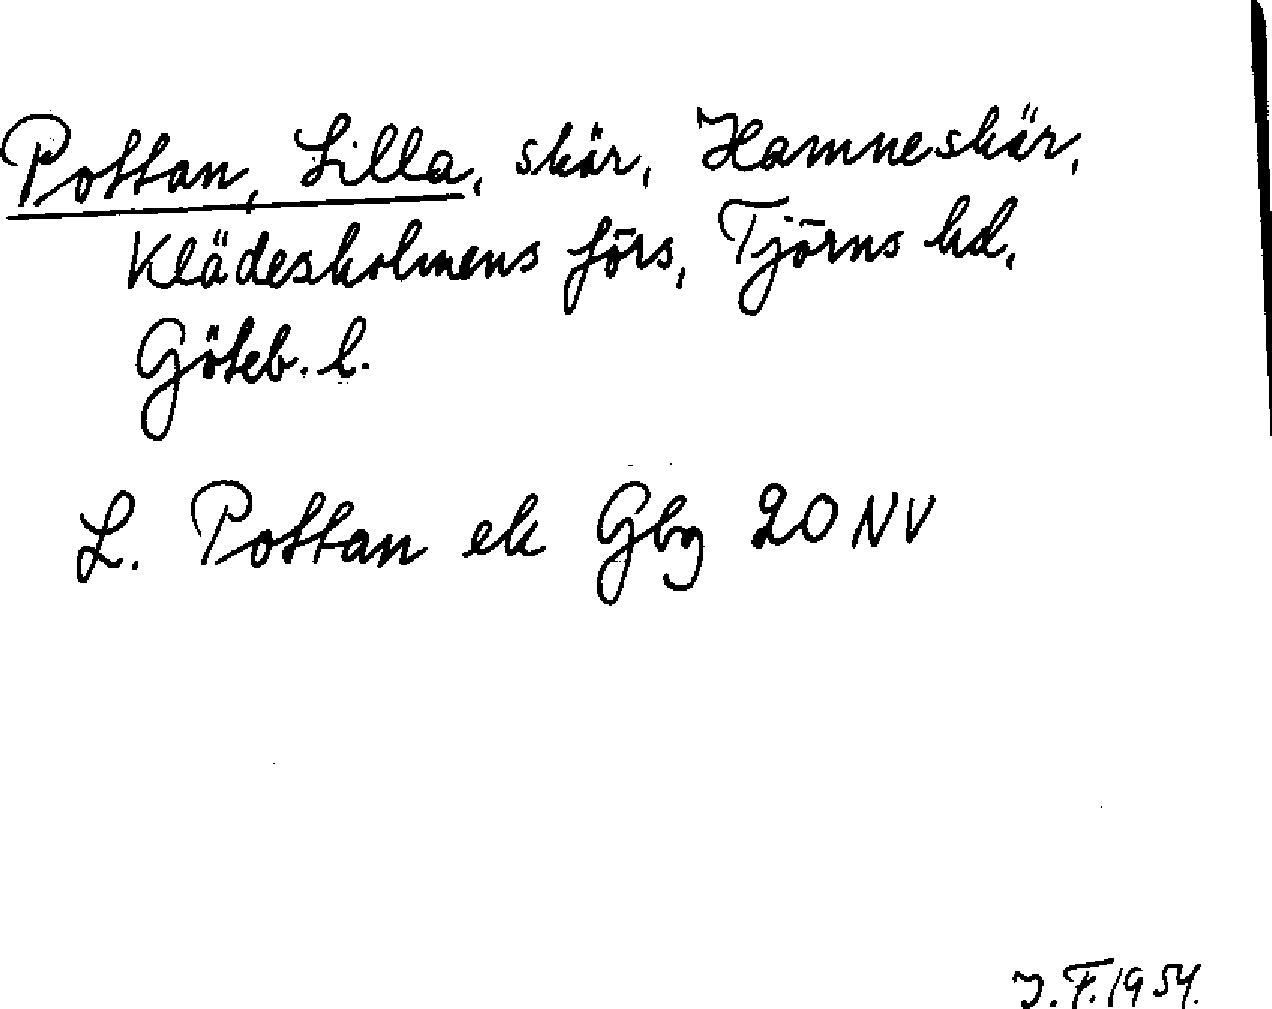 Pottan, Lilla, skär, Hamneskär,
Klädesholmens förs, Tjörns hd,
Göteb. l.
L. Pottan ek Gbg 20 NV
I. F. 1954.